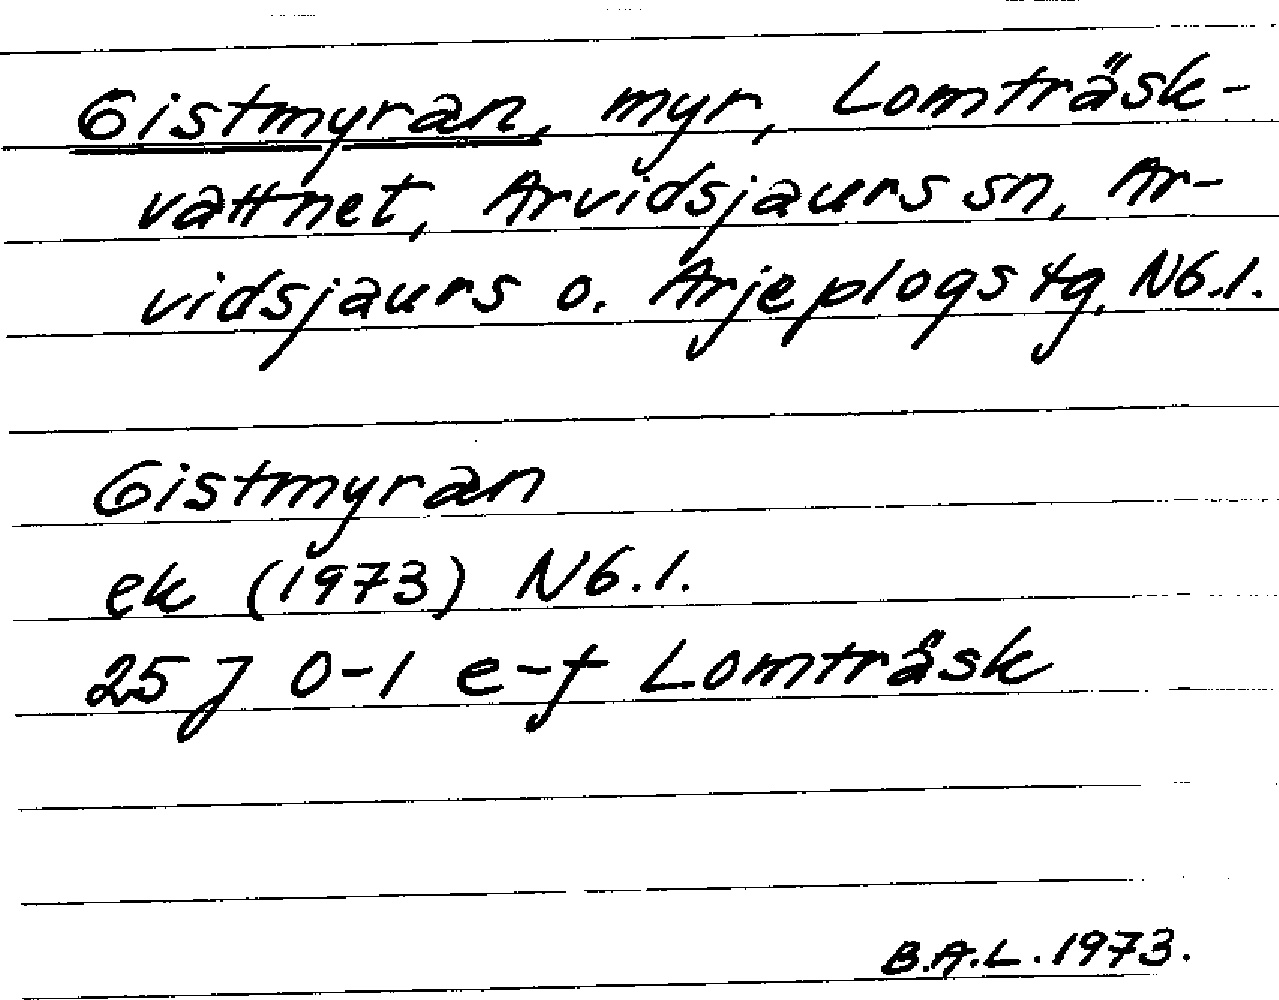 Gistmyran, myr, Lomträsk-
vattnet, Arvidsjaurs sn, Ar-
vidsjaurs o. Arjeplogs tg, Nb.l.
Gistmyran
ek (1973) Nb.l.
25 J 0-1 e-f Lomträsk
B.A.L. 1973.